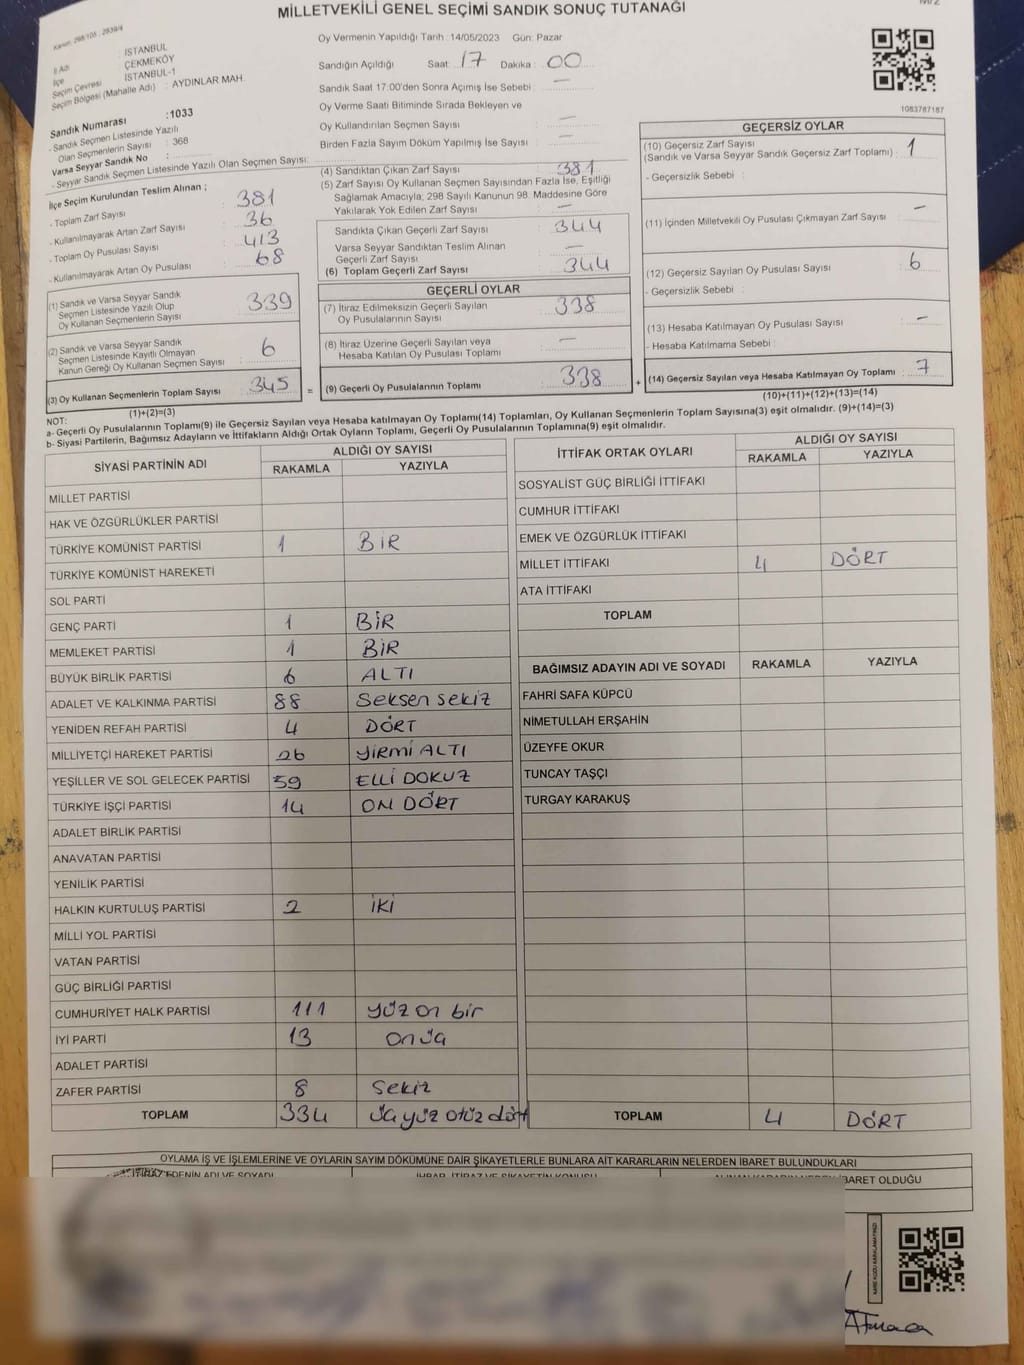 MİLLETVEKİLİ GENEL SEÇİMİ SANDIK SONUÇ TUTANAĞI
Kanun: 298/105 , 2839/4
İl Adı : İSTANBUL
İlçe : ÇEKMEKÖY
Seçim Çevresi : İSTANBUL-1
Seçim Bölgesi (Mahalle Adı) : AYDINLAR MAH.
Sandık Numarası :1033
- Sandık Seçmen Listesinde Yazılı
Olan Seçmenlerin Sayısı : 368
Varsa Seyyar Sandık No :
- Seyyar Sandık Seçmen Listesinde Yazılı Olan Seçmen Sayısı:
İlçe Seçim Kurulundan Teslim Alınan ;
- Toplam Zarf Sayısı 381
- Kullanılmayarak Artan Zarf Sayısı 36
- Toplam Oy Pusulası Sayısı 413
- Kullanılmayarak Artan Oy Pusulası 68
(1) Sandık ve Varsa Seyyar Sandık
Seçmen Listesinde Yazılı Olup
Oy Kullanan Seçmenlerin Sayısı 339
(2) Sandık ve Varsa Seyyar Sandık
Seçmen Listesinde Kayıtlı Olmayan
Kanun Gereği Oy Kullanan Seçmen Sayısı 6
(3) Oy Kullanan Seçmenlerin Toplam Sayısı 345 =
(1)+(2)=(3)
Oy Vermenin Yapıldığı Tarih :14/05/2023 Gün: Pazar
Sandığın Açıldığı Saat : 17 Dakika : 00
Sandık Saat 17:00'den Sonra Açımış İse Sebebi : —
Oy Verme Saati Bitiminde Sırada Bekleyen ve
Oy Kullandırılan Seçmen Sayısı : —
Birden Fazla Sayım Döküm Yapılmış İse Sayısı : —
(4) Sandıktan Çıkan Zarf Sayısı 381
(5) Zarf Sayısı Oy Kullanan Seçmen Sayısından Fazla İse, Eşitliği
Sağlamak Amacıyla; 298 Sayılı Kanunun 98. Maddesine Göre
Yakılarak Yok Edilen Zarf Sayısı : —
Sandıkta Çıkan Geçerli Zarf Sayısı 344
Varsa Seyyar Sandıktan Teslim Alınan
Geçerli Zarf Sayısı —
(6) Toplam Geçerli Zarf Sayısı 344
GEÇERLİ OYLAR
(7) İtiraz Edilmeksizin Geçerli Sayılan
Oy Pusulalarının Sayısı 338
(8) İtiraz Üzerine Geçerli Sayılan veya
Hesaba Katılan Oy Pusulası Toplamı —
(9) Geçerli Oy Pusulalarının Toplamı 338 +
1083787187
GEÇERSİZ OYLAR
(10) Geçersiz Zarf Sayısı
(Sandık ve Varsa Seyyar Sandık Geçersiz Zarf Toplamı) : 1
- Geçersizlik Sebebi :
(11) İçinden Milletvekili Oy Pusulası Çıkmayan Zarf Sayısı —
(12) Geçersiz Sayılan Oy Pusulası Sayısı 6
- Geçersizlik Sebebi :
(13) Hesaba Katılmayan Oy Pusulası Sayısı —
- Hesaba Katılmama Sebebi :
(14) Geçersiz Sayılan veya Hesaba Katılmayan Oy Toplamı 7
(10)+(11)+(12)+(13)=(14)
NOT:
a- Geçerli Oy Pusulalarının Toplamı(9) ile Geçersiz Sayılan veya Hesaba katılmayan Oy Toplamı(14) Toplamları, Oy Kullanan Seçmenlerin Toplam Sayısına(3) eşit olmalıdır. (9)+(14)=(3)
b- Siyasi Partilerin, Bağımsız Adayların ve İttifakların Aldığı Ortak Oyların Toplamı, Geçerli Oy Pusulalarının Toplamına(9) eşit olmalıdır.
SİYASİ PARTİNİN ADI ALDIĞI OY SAYISI
RAKAMLA YAZIYLA
MİLLET PARTİSİ
HAK VE ÖZGÜRLÜKLER PARTİSİ
TÜRKİYE KOMÜNİST PARTİSİ 1 BİR
TÜRKİYE KOMÜNİST HAREKETİ
SOL PARTİ
GENÇ PARTİ 1 BİR
MEMLEKET PARTİSİ 1 BİR
BÜYÜK BİRLİK PARTİSİ 6 ALTI
ADALET VE KALKINMA PARTİSİ 88 Seksen sekiz
YENİDEN REFAH PARTİSİ 4 DÖRT
MİLLİYETÇİ HAREKET PARTİSİ 26 YİRMİ ALTI
YEŞİLLER VE SOL GELECEK PARTİSİ 59 ELLİ DOKUZ
TÜRKİYE İŞÇİ PARTİSİ 14 ON DÖRT
ADALET BİRLİK PARTİSİ
ANAVATAN PARTİSİ
YENİLİK PARTİSİ
HALKIN KURTULUŞ PARTİSİ 2 İKİ
MİLLİ YOL PARTİSİ
VATAN PARTİSİ
GÜÇ BİRLİĞİ PARTİSİ
CUMHURİYET HALK PARTİSİ 111 yüz on bir
İYİ PARTİ 13 on üç
ADALET PARTİSİ
ZAFER PARTİSİ 8 Sekiz
TOPLAM 334 üçyüz otuz dört
İTTİFAK ORTAK OYLARI ALDIĞI OY SAYISI
RAKAMLA YAZIYLA
SOSYALİST GÜÇ BİRLİĞİ İTTİFAKI
CUMHUR İTTİFAKI
EMEK VE ÖZGÜRLÜK İTTİFAKI
MİLLET İTTİFAKI 4 DÖRT
ATA İTTİFAKI
TOPLAM
BAĞIMSIZ ADAYIN ADI VE SOYADI RAKAMLA YAZIYLA
FAHRİ SAFA KÜPCÜ
NİMETULLAH ERŞAHİN
ÜZEYFE OKUR
TUNCAY TAŞÇI
TURGAY KARAKUŞ
TOPLAM 4 DÖRT
OYLAMA İŞ VE İŞLEMLERİNE VE OYLARIN SAYIM DÖKÜMÜNE DAİR ŞİKAYETLERLE BUNLARA AİT KARARLARIN NELERDEN İBARET BULUNDUKLARI
İTİRAZ EDENİN ADI VE SOYADI
İBARET OLDUĞU
KARE KODU KARALAMAYINIZ!